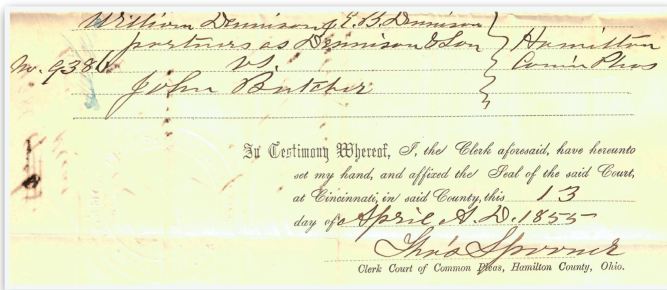 William Dennison & E. B. Dennison
partners as Dennison & Son } Hamilton
No. 9386 vs. Com'n Pleas
John Butcher
In Testimony Whereof, I, the Clerk aforesaid, have hereunto
set my hand, and affixed the Seal of the said Court,
at Cincinnati, in said County, this 13
day of April A.D. 1855
Tho's Spooner
Clerk Court of Common Pleas, Hamilton County, Ohio.